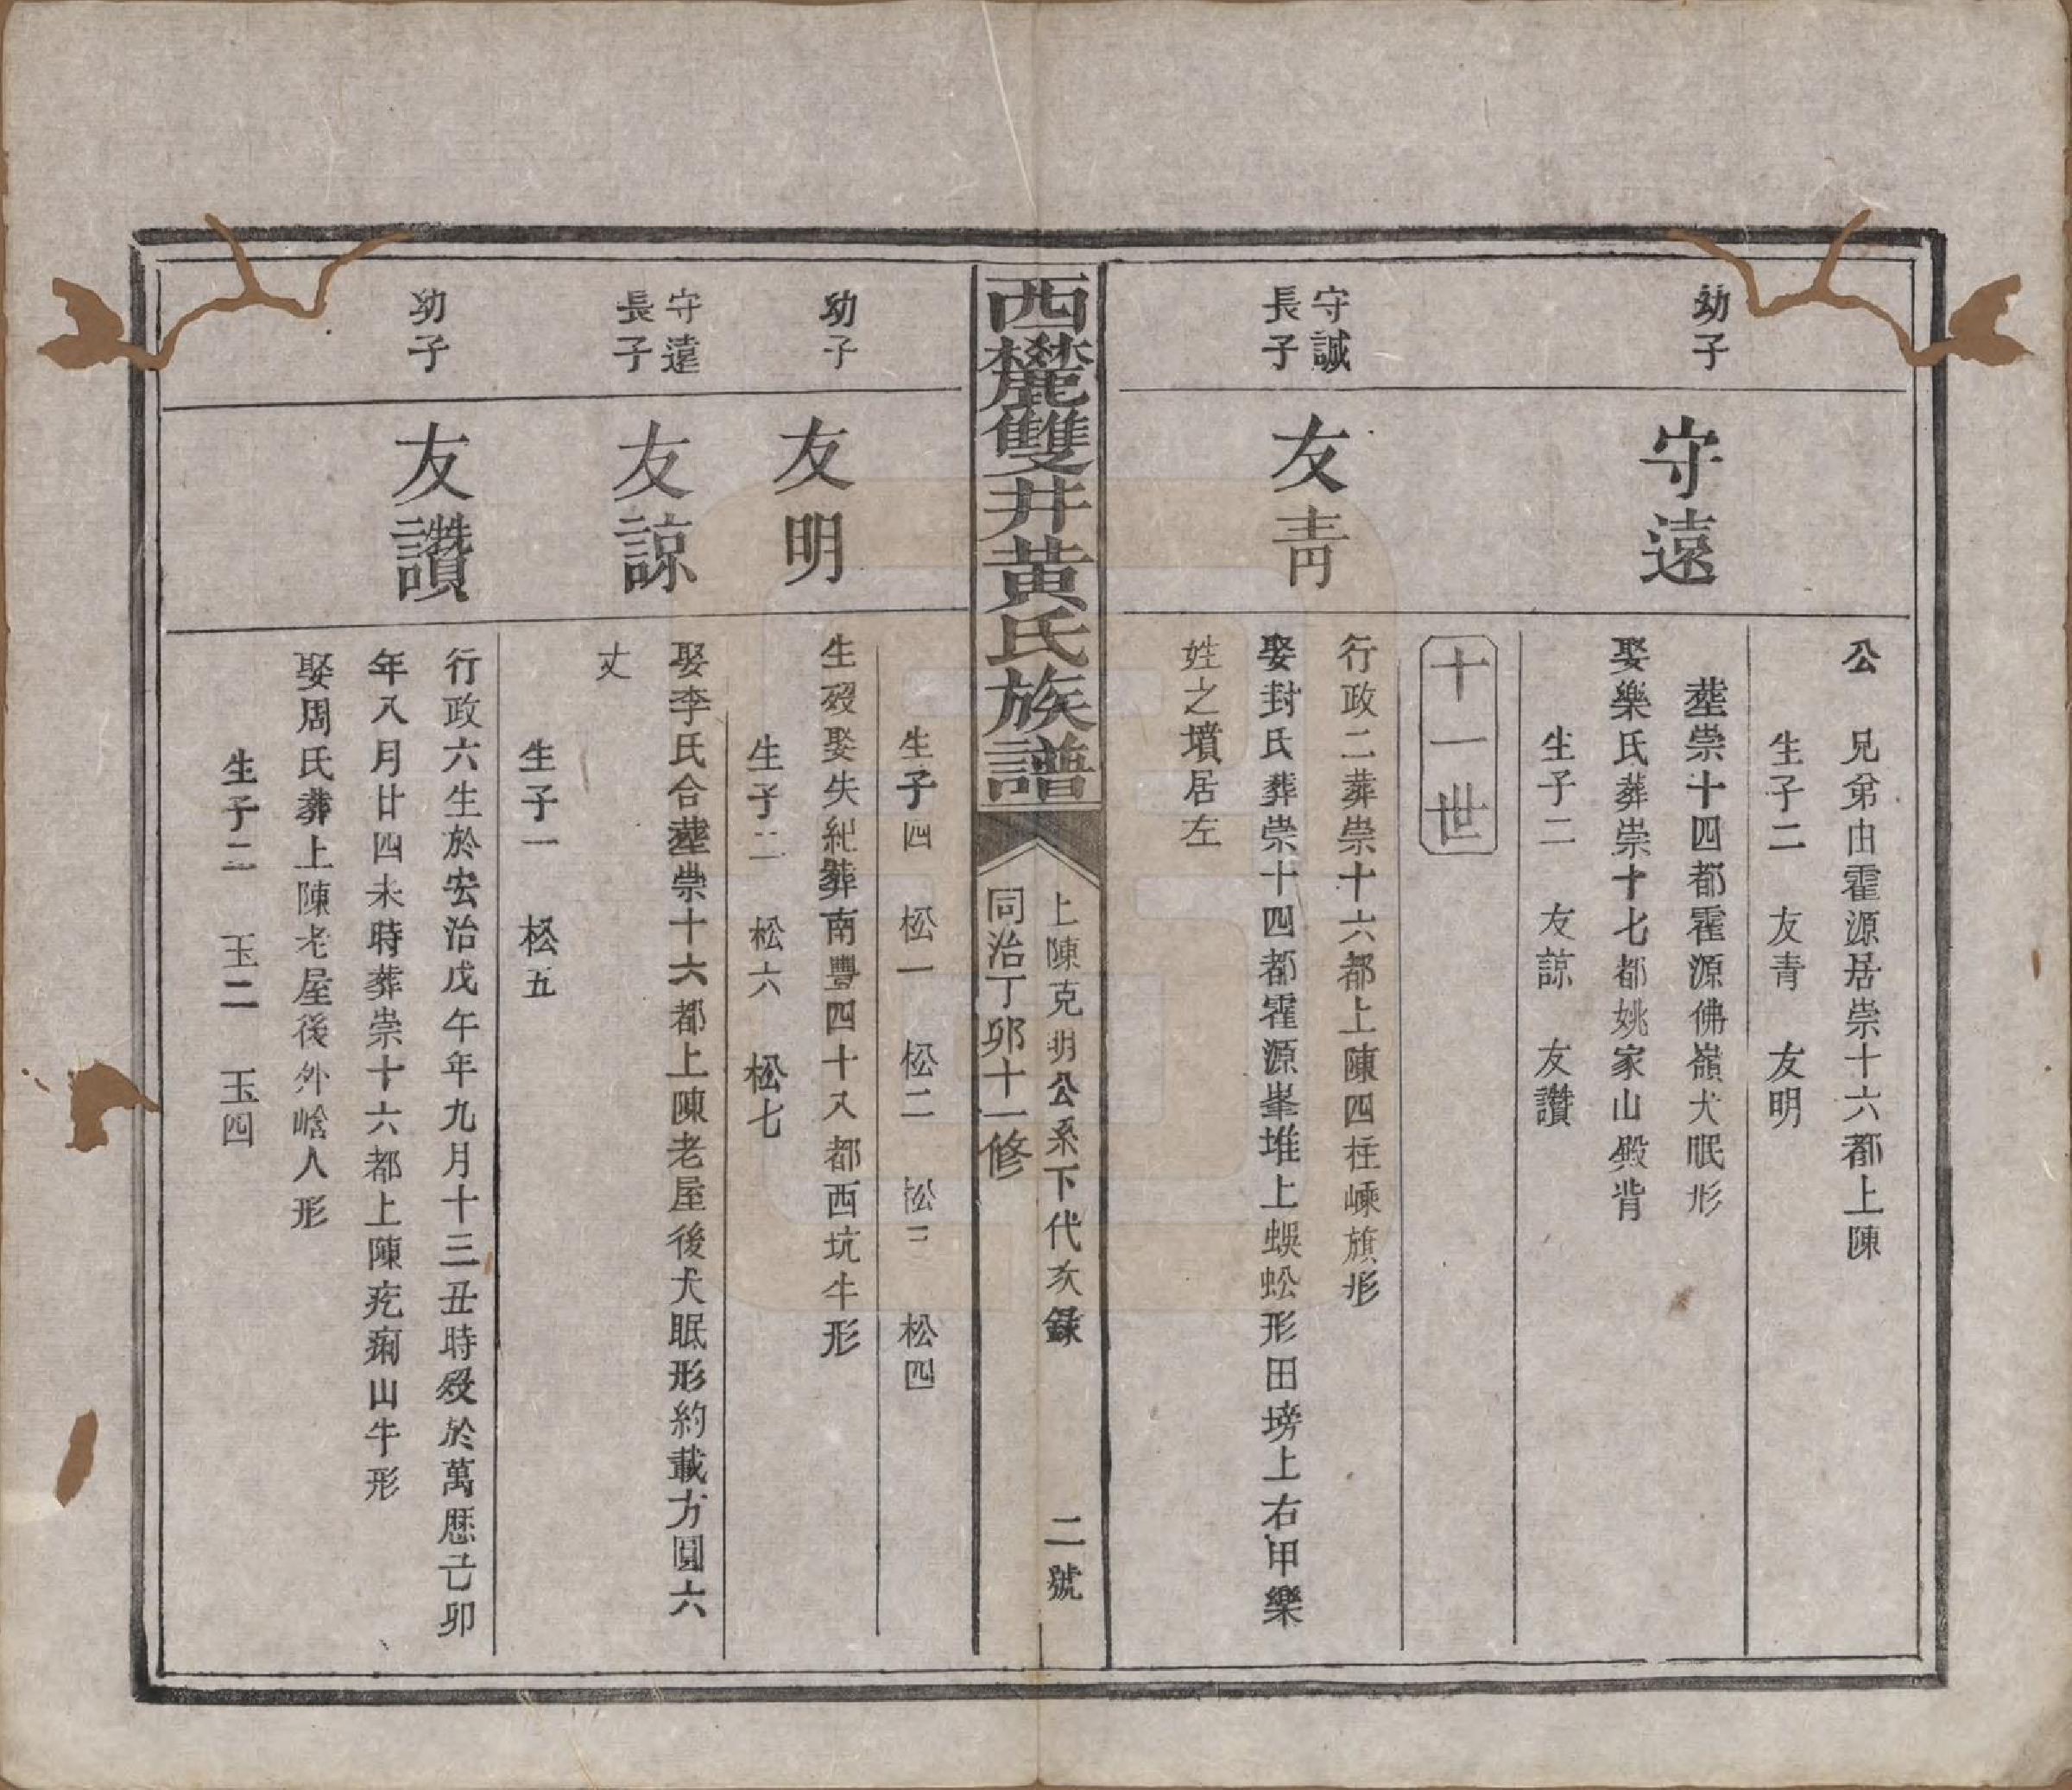 公　兄弟由霍源居崇十六都上陳
生子二　友青　友明
幼子
守遠
塟崇十四都霍源佛嶺犬眠形
娶樂氏葬崇十七都姚家山殿背
生子二　友諒　友讚
十一世
守誠
長子
友青
行政二葬崇十六都上陳四柱嵊旗形
娶封氏葬崇十四都霍源峯堆上蜈蚣形田塝上右甲樂
姓之墳居左
西麓雙井黃氏族譜
上陳克明公系下代亥錄
二號
同治丁卯十一修
生子四　松一　松二　松三　松四
幼子
友明
生歿娶失紀葬南豐四十八都西坑牛形
生子二　松六　松七
守遠
長子
友諒
娶李氏合塟崇十六都上陳老屋後犬眠形約載方圓六
丈
生子一　松五
幼子
友讚
行政六生於宏治戊午年九月十三丑時歿於萬歷己卯
年八月廿四未時葬崇十六都上陳疙痢山牛形
娶周氏葬上陳老屋後外崯人形
生子二　玉二　玉四